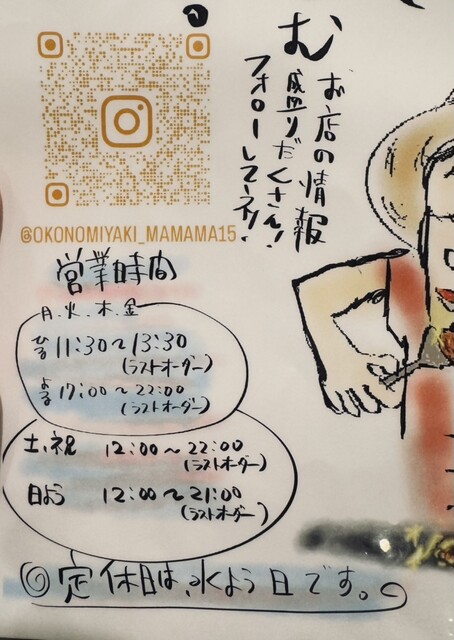 む
お店の情報
盛りだくさん!
フォローしてネ!
@OKONOMIYAKI_MAMAMA15
営業時間
月.火.木.金
ひる 11:30〜13:30
(ラストオーダー)
よる 17:00〜22:00
(ラストオーダー)
土、祝 12:00〜22:00
(ラストオーダー)
日よう 12:00〜21:00
(ラストオーダー)
◎定休日は、水よう日です。